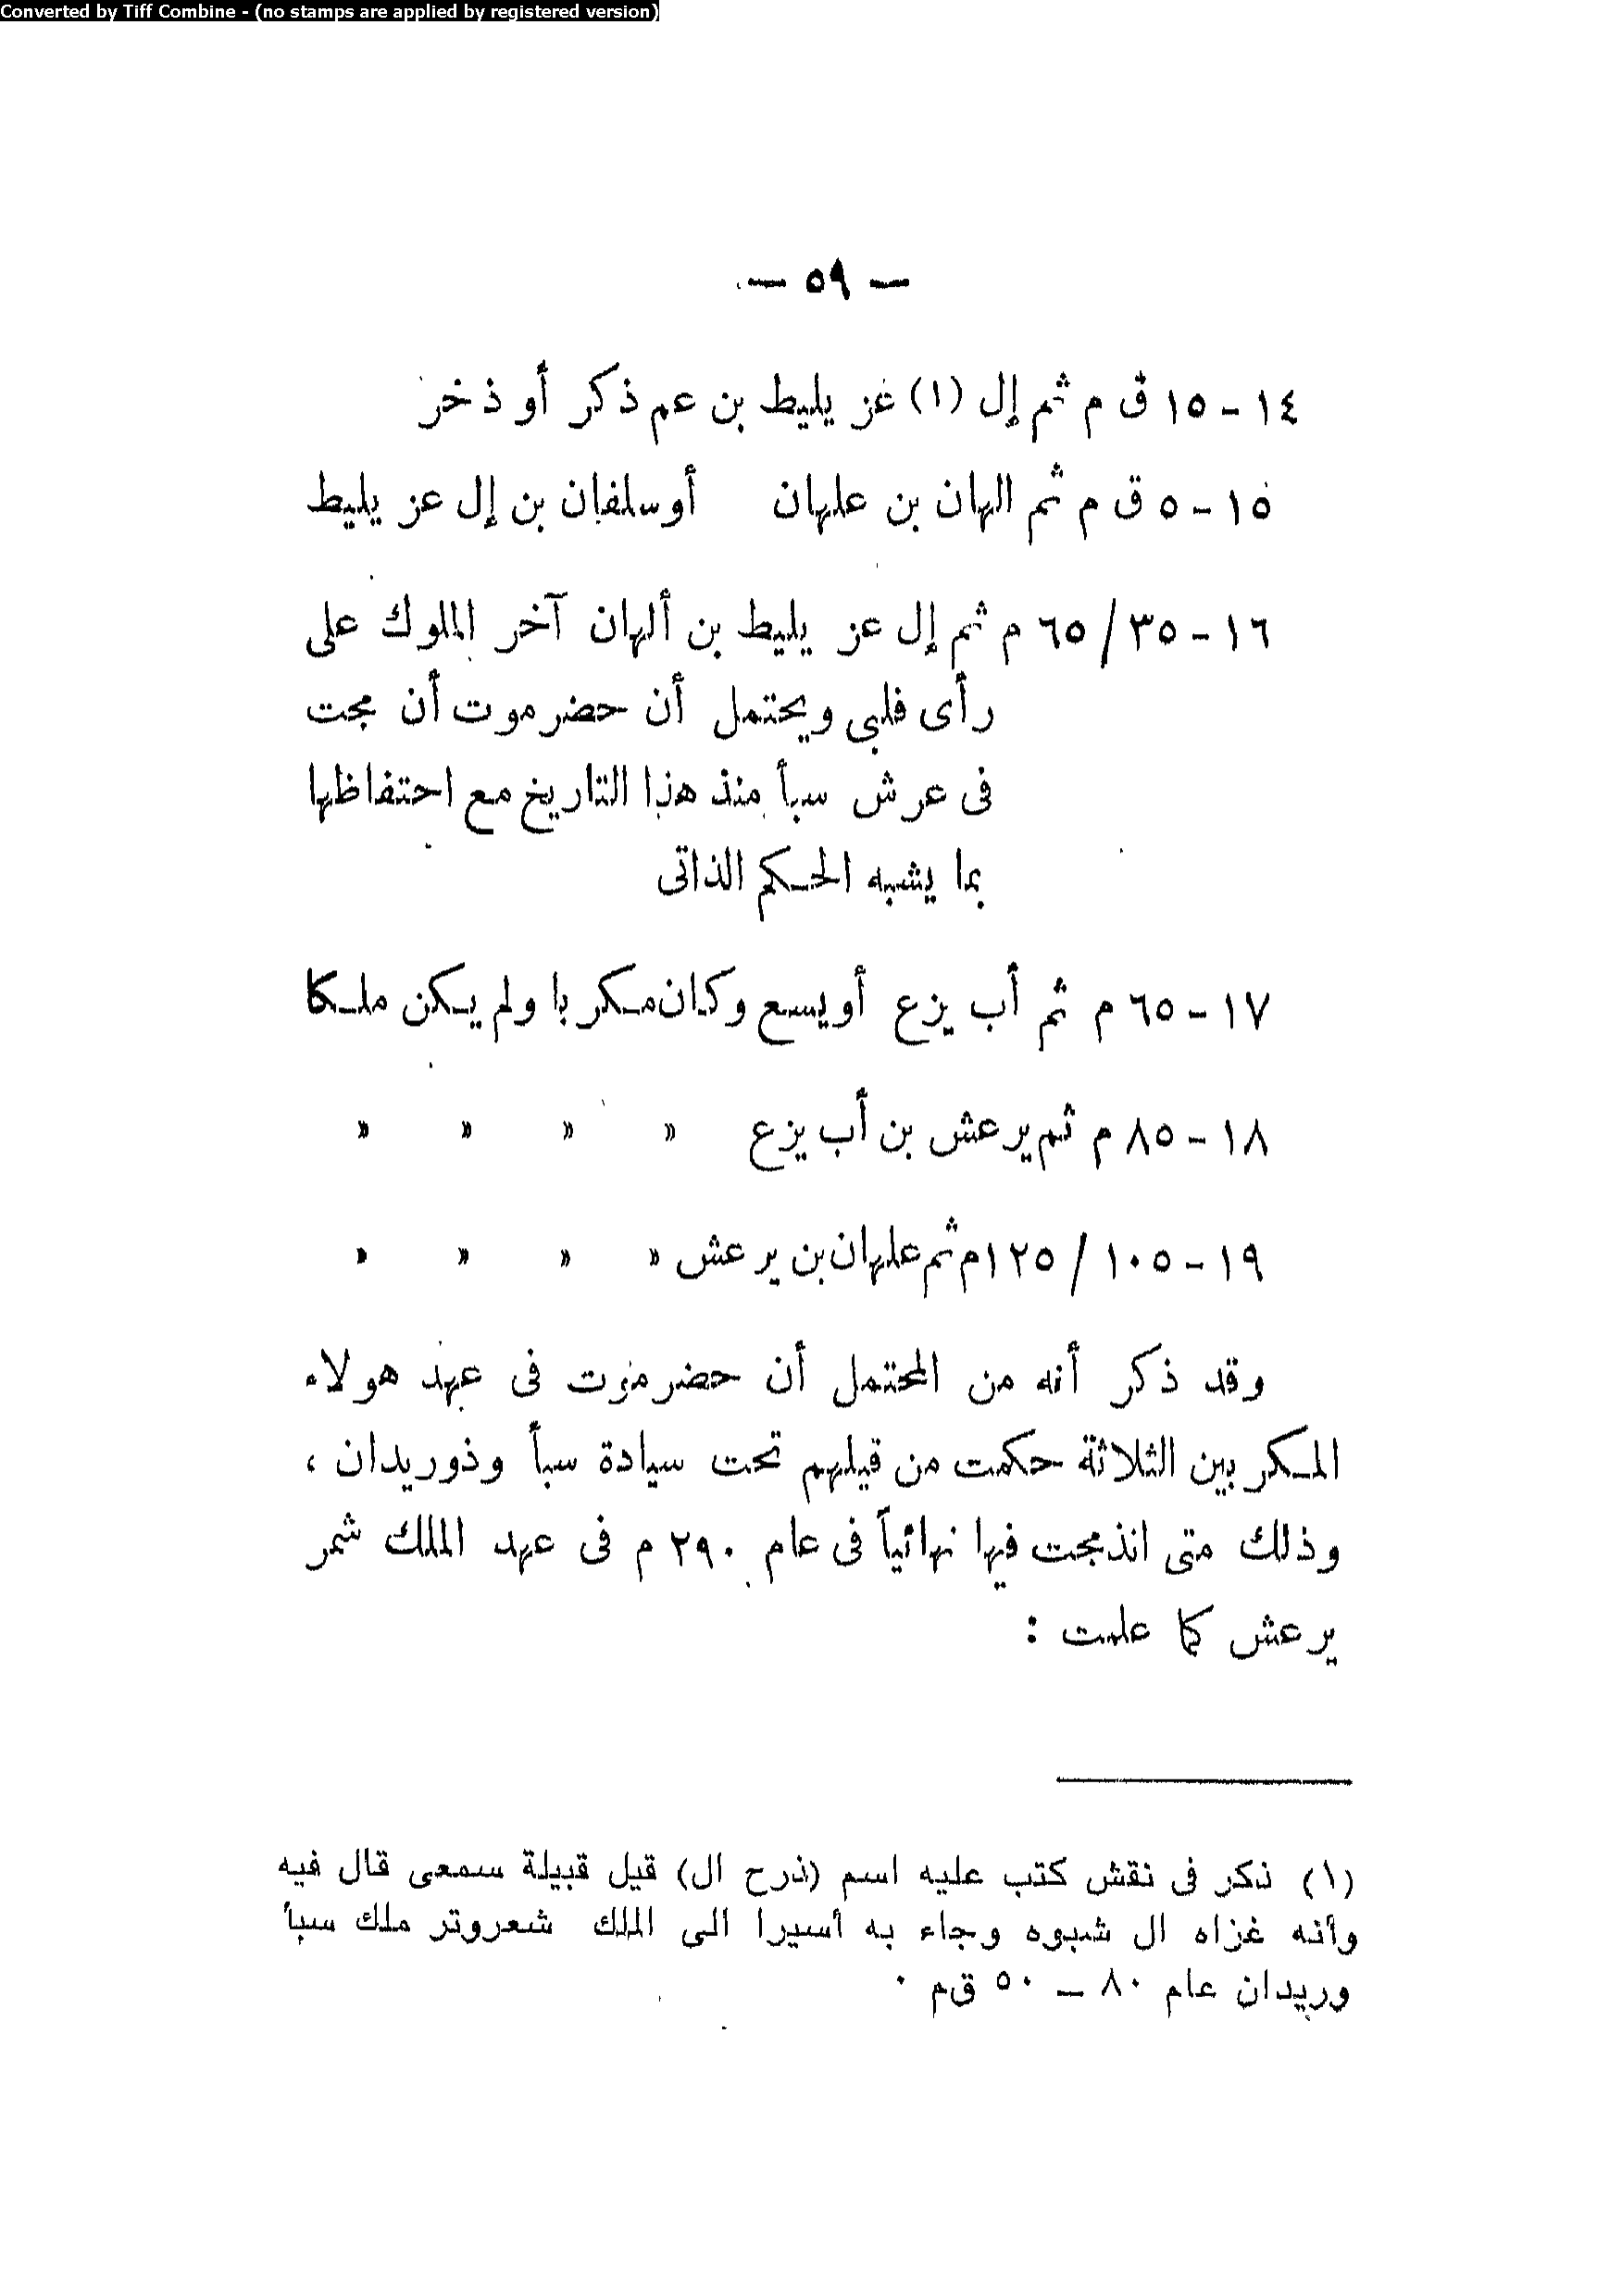 Converted by Tiff Combine - (no stamps are applied by registered version)
— ٥٩ —
١٤ - ١٥ ق م ثم إل (١) غز يليط بن عم ذكر أو ذخر
١٥ - ٥ ق م ثم الهان بن علهان أو سلفان بن إل عز يليط
١٦ - ٣٥ / ٦٥ م ثم إل عز يليط بن ألهان آخر الملوك على
رأى فلبى ويحتمل أن حضر موت أن مجت
فى عرش سبأ منذ هذا التاريخ مع احتفاظها
بما يشبه الحكم الذاتى
١٧ - ٦٥ م ثم أب يزع أو يسع وكان مكر با ولم يكن ملكا
١٨ - ٨٥ م ثم ير عش بن أب يزع » » » »
١٩ - ١٠٥ / ١٢٥ م ثم علهان بن ير عش » » » »
وقد ذكر أنه من المحتمل أن حضر موت فى عهد هولاء
المكر بين الثلاثة حكمت من قيلهم تحت سيادة سبأ وذوريدان ،
وذلك متى انذمجت فيها نهائياً فى عام ٢٩٠ م فى عهد الملك شمر
ير عش كما علمت :
(١) ذكر فى نقش كتب عليه اسم (ذرح ال) قيل قبيلة سمعى قال فيه
وأنه غزاه ال شبوه وجاء به أسيرا الى الملك شعروتر ملك سبأ
وريدان عام ٨٠ — ٥٠ ق م ٠